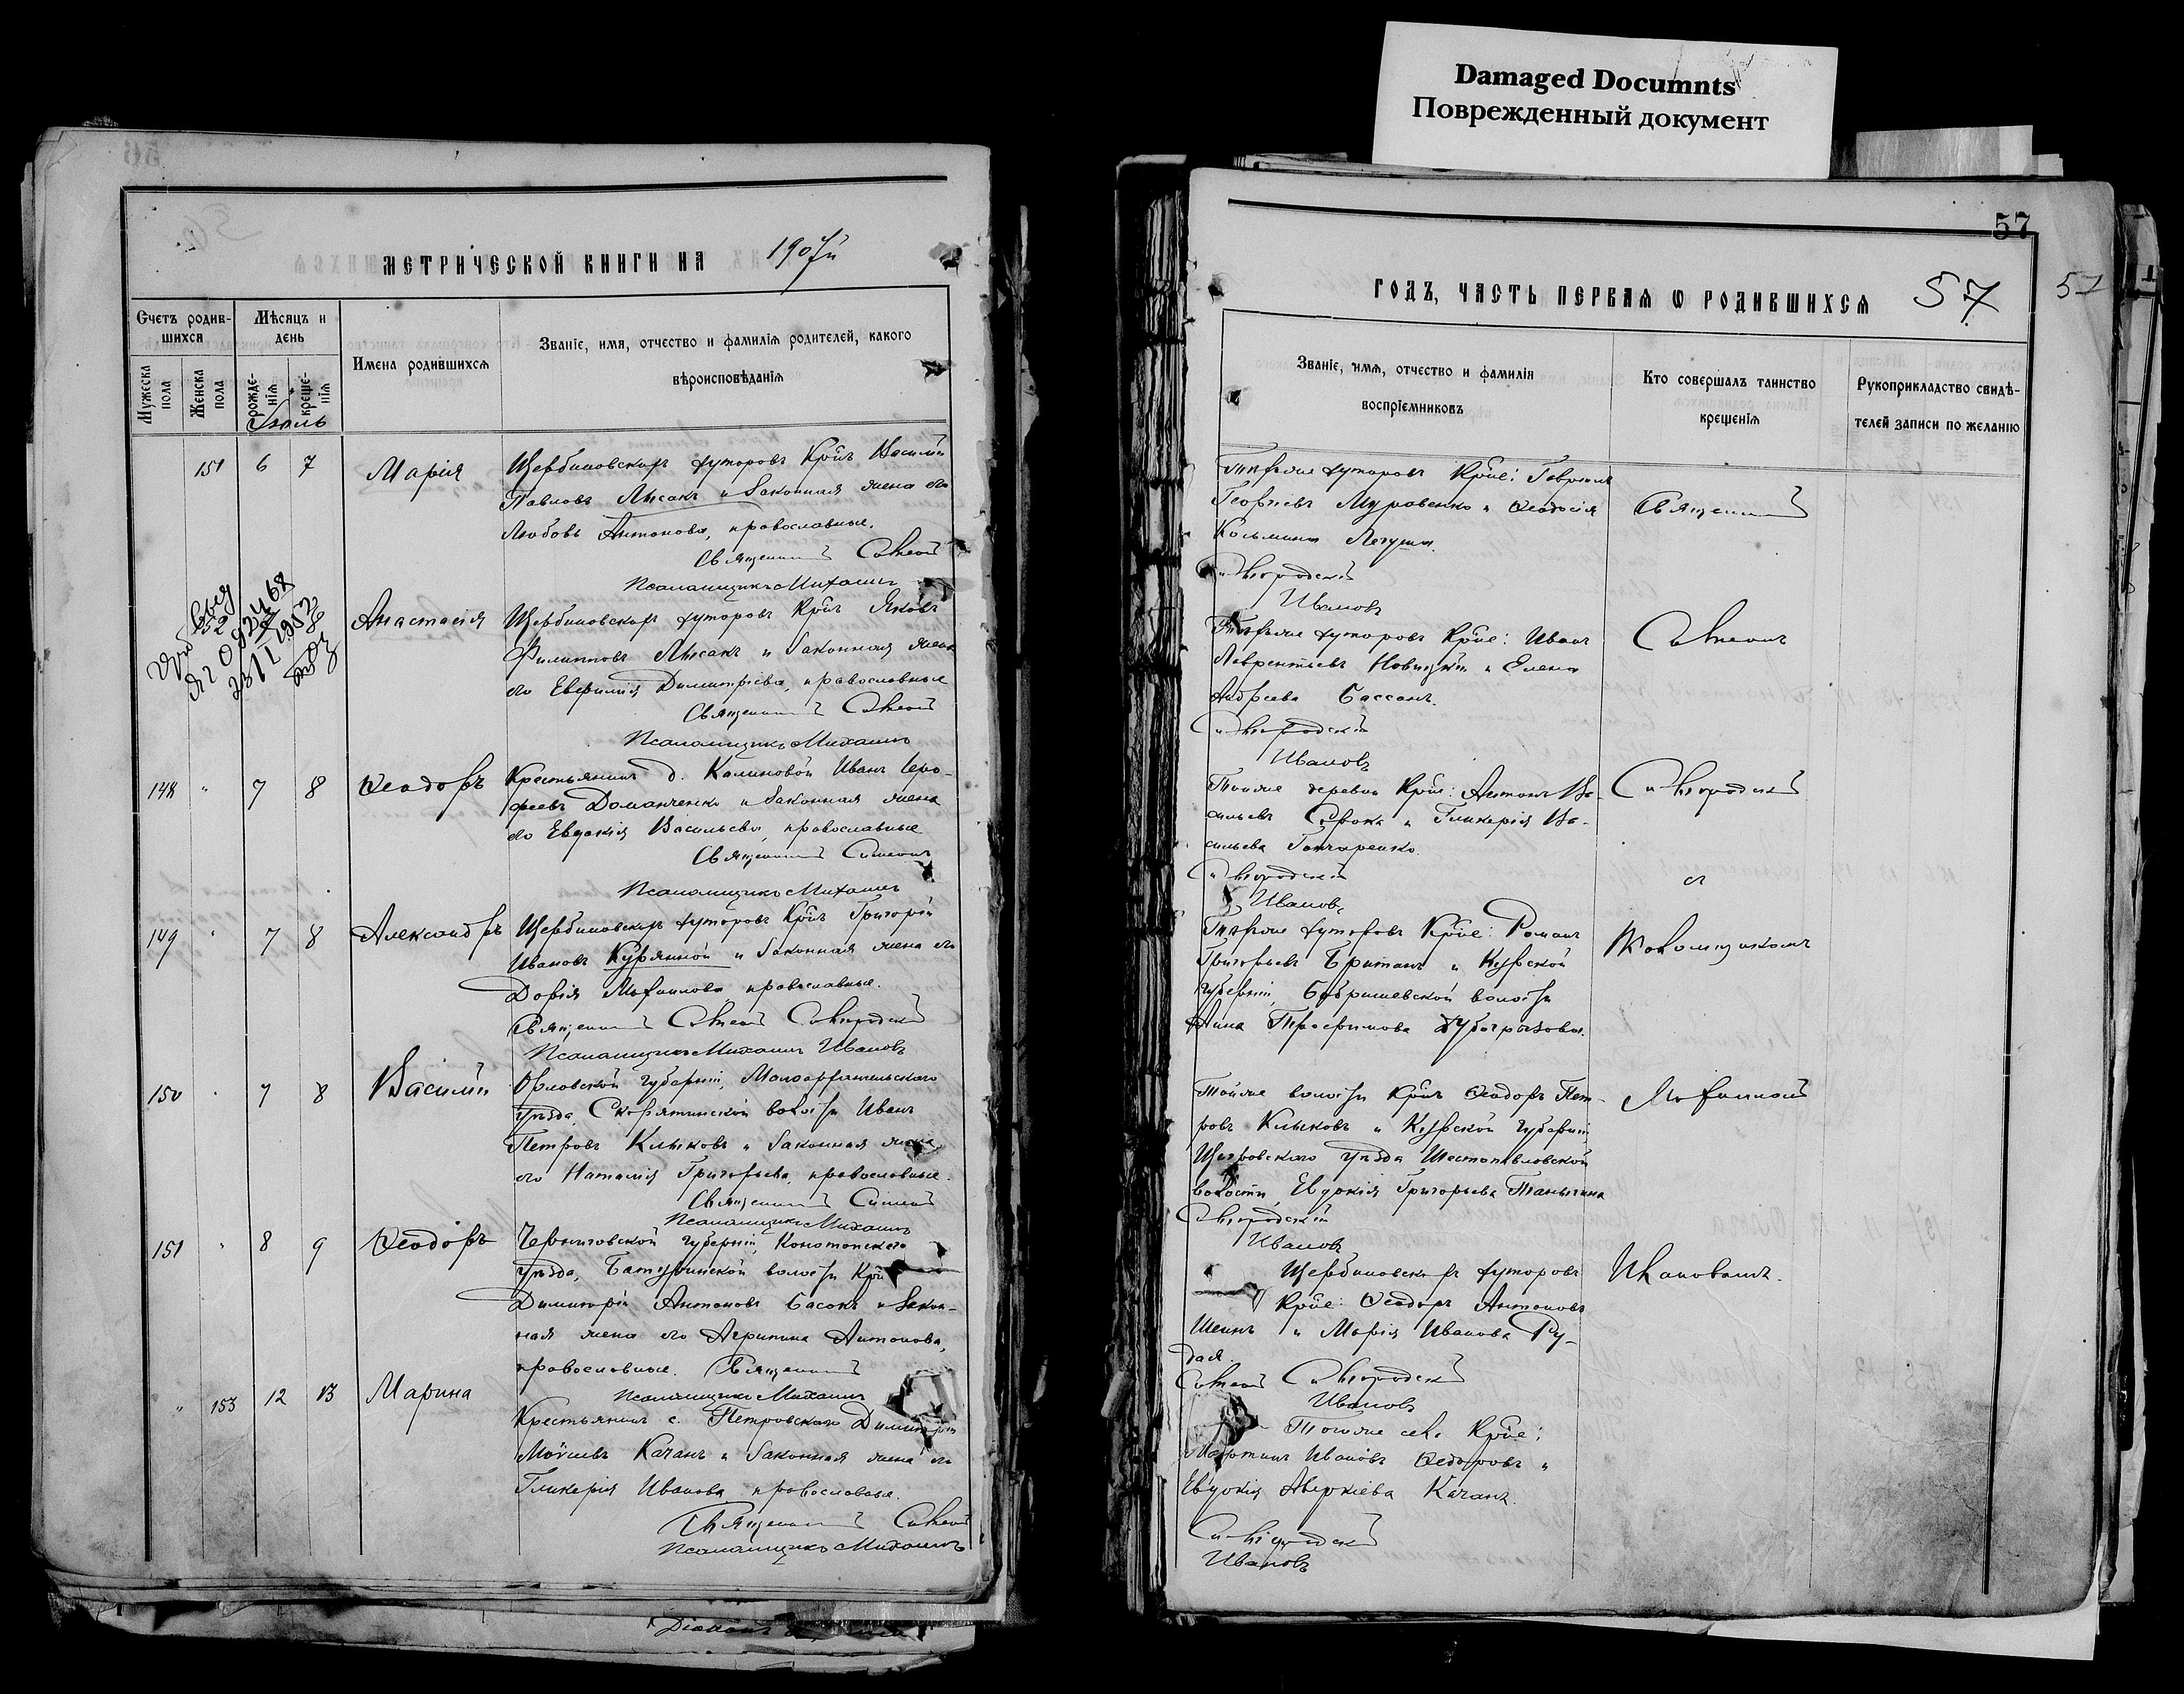 Damaged Documnts
Поврежденный документ
МЕТРИЧЕСКОЙ КНИГИ НА 1907й
Счетъ родив-
шихся
Мѣсяцъ и
день
Имена родившихся
Званіе, имя, отчество и фамилія родителей, какого
вѣроисповѣданія
Мужеска
пола
Женска
пола
рожде-
нія
креще-
нія
Іюль
151 6 7 Марія Щербиновскихъ хуторовъ Кр̃нъ Василій
Павловъ Лысакъ и законная жена его
Любовь Антонова, православные.
Священникъ Симеонъ
Псаломщикъ Михаилъ
Анастасія Щербиновскихъ хуторовъ Кр̃нъ Яковъ
Филипповъ Лысакъ и законная жена
его Евфимія Димитріева, православные
Священникъ Симеонъ
Псаломщикъ Михаилъ
148 " 7 8 Ѳеодоръ Крестьянинъ д. Калиновой Иванъ Еро-
феевъ Доманченко и законная жена
его Евдокія Васильева, православные
Священникъ Симеонъ
Псаломщикъ Михаилъ
149 " 7 8 Александръ Щербиновскихъ хуторовъ Кр̃нъ Григорій
Ивановъ Курянной и законная жена его
Дарія Михаилова православные.
Священникъ Симеонъ
Псаломщикъ Михаилъ Ивановъ
150 " 7 8 Василій Орловской губерніи, Малоархангельскаго
уѣзда, Скарятинской волости Иванъ
Петровъ Клыковъ и законная жена
его Наталія Григорьева, православные.
Священникъ Симеонъ
Псаломщикъ Михаилъ
151 " 8 9 Ѳеодоръ Черниговской губерніи, Конотопскаго
уѣзда, Батуринской волости Кр̃нъ
Димитрій Антоновъ Басокъ и закон-
ная жена его Агрипина Антонова,
православные. Священникъ
Псаломщикъ Михаилъ
" 153 12 13 Марина Крестьянинъ с. Петровскаго Димитрій
Моѵсеевъ Качанъ и законная жена его
Гликерія Иванова православные.
Священникъ Симеонъ
Псаломщикъ Михаилъ
57
ГОДЪ, ЧАСТЬ ПЕРВАЯ Ѡ РОДИВШИХСЯ 57
57
Званіе, имя, отчество и фамилія
воспріемниковъ
Кто совершалъ таинство
крещенія
Рукоприкладство свидѣ-
телей записи по желанію
Тѣхъ же хуторовъ Кр̃не: Гавріилъ
Георгіевъ Муравенко и Ѳеодосія
Козьмина
Священникъ
Ивановъ
Тѣхъ же хуторовъ Кр̃не: Иванъ
Лаврентьевъ Новицкій и Елена
Андреева Бассанъ.
Симеонъ
Ивановъ
Той же деревни Кр̃не: Антонъ Ва-
сильевъ Сорока и Гликерія Ва-
сильева Гончаренко
Ивановъ
съ
Тѣхъ же хуторовъ Кр̃не: Романъ
Григорьевъ Британъ и Курской
губерніи, волости
Анна Трофимова
Псаломщикомъ
Той же волости Кр̃нъ Ѳеодоръ Пет-
ровъ Клыковъ и Курской губерніи,
Щигровскаго уѣзда
волости Евдокія Григорьева
Михаиломъ
Ивановъ
Щербиновскихъ хуторовъ
Кр̃не: Ѳеодоръ Антоновъ
Шеинъ и Марія Иванова Ру-
дая.
Ивановымъ.
Симеонъ
Ивановъ
Того же села Кр̃не:
Мартинъ Ивановъ Ѳедоровъ и
Евдокія Аверкіева Качанъ.
Ивановъ